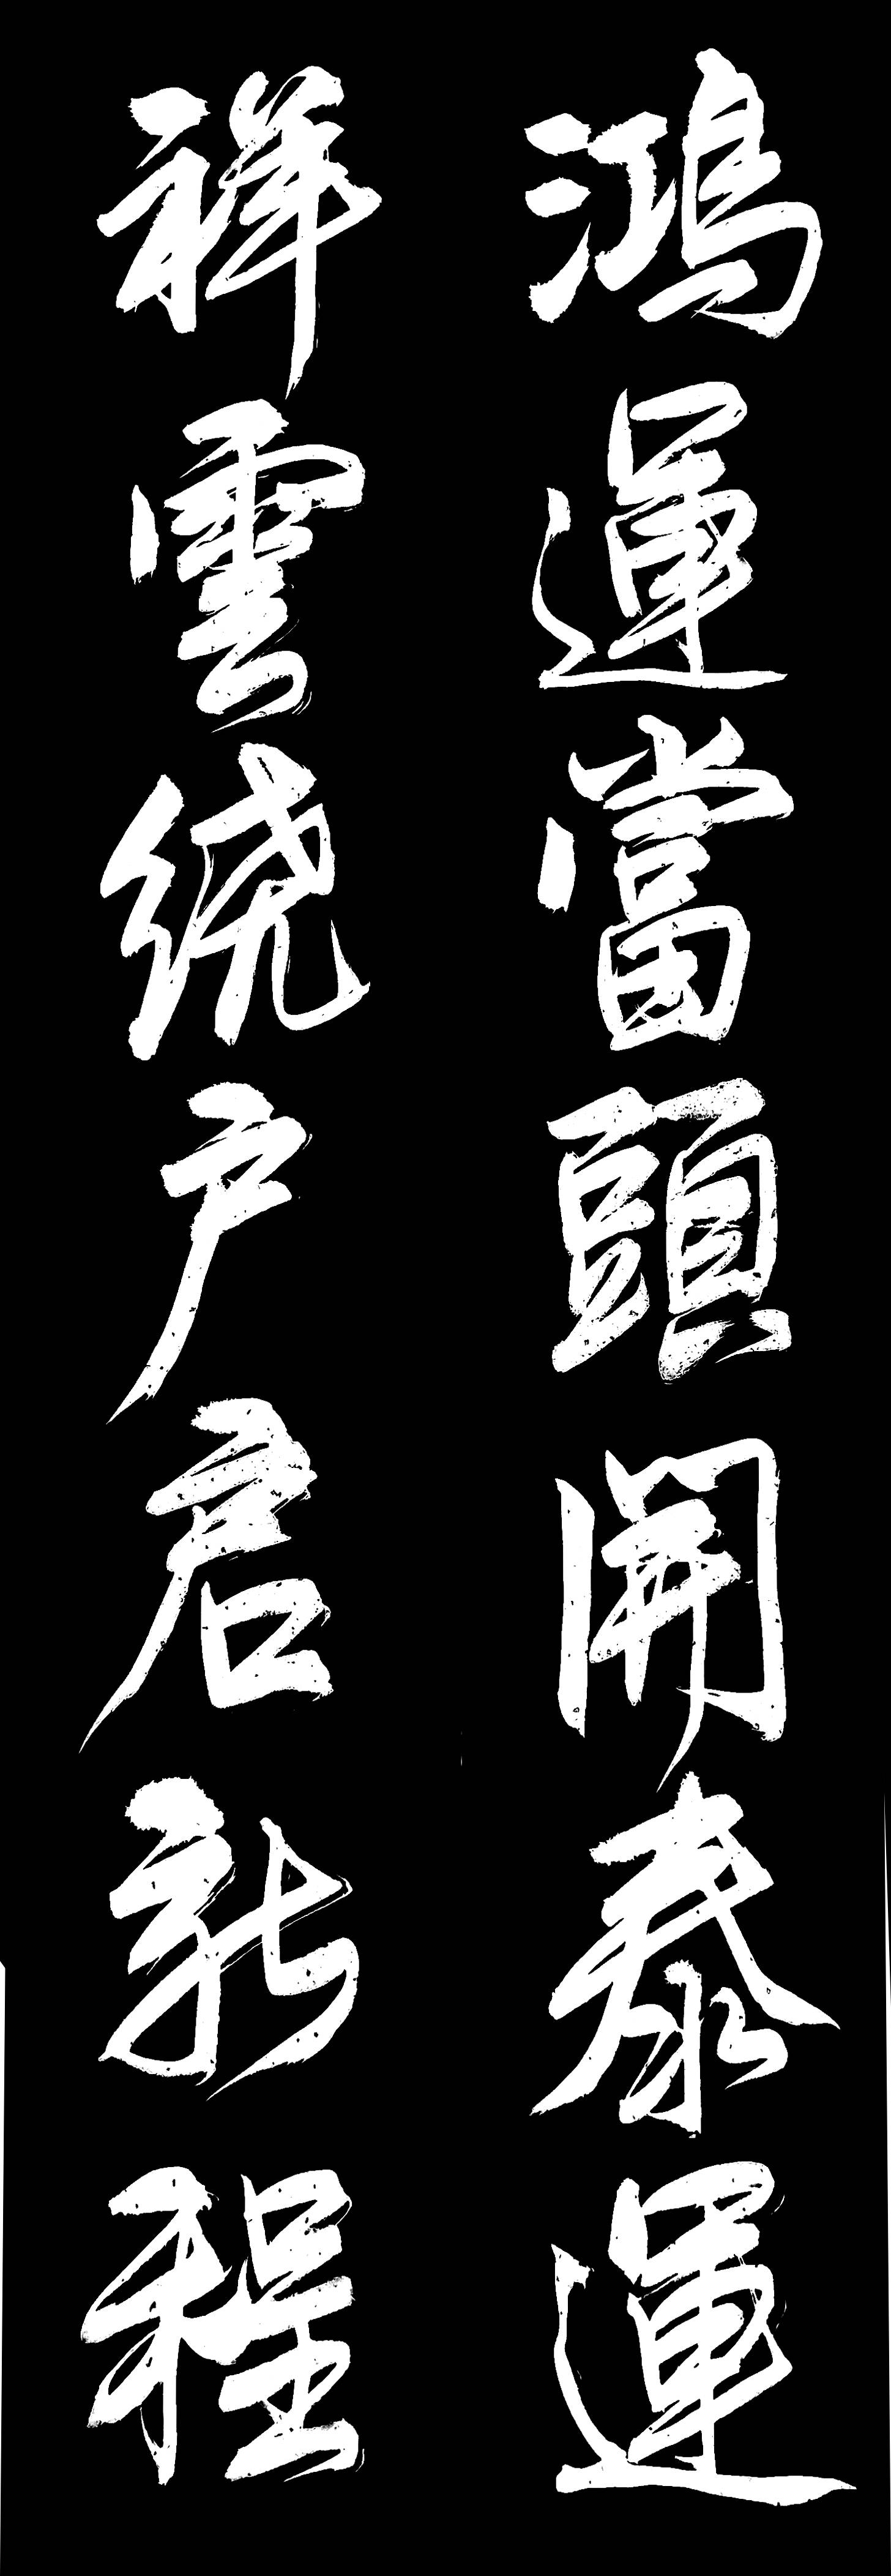 鴻運當頭開泰運
祥雲绕户启新程